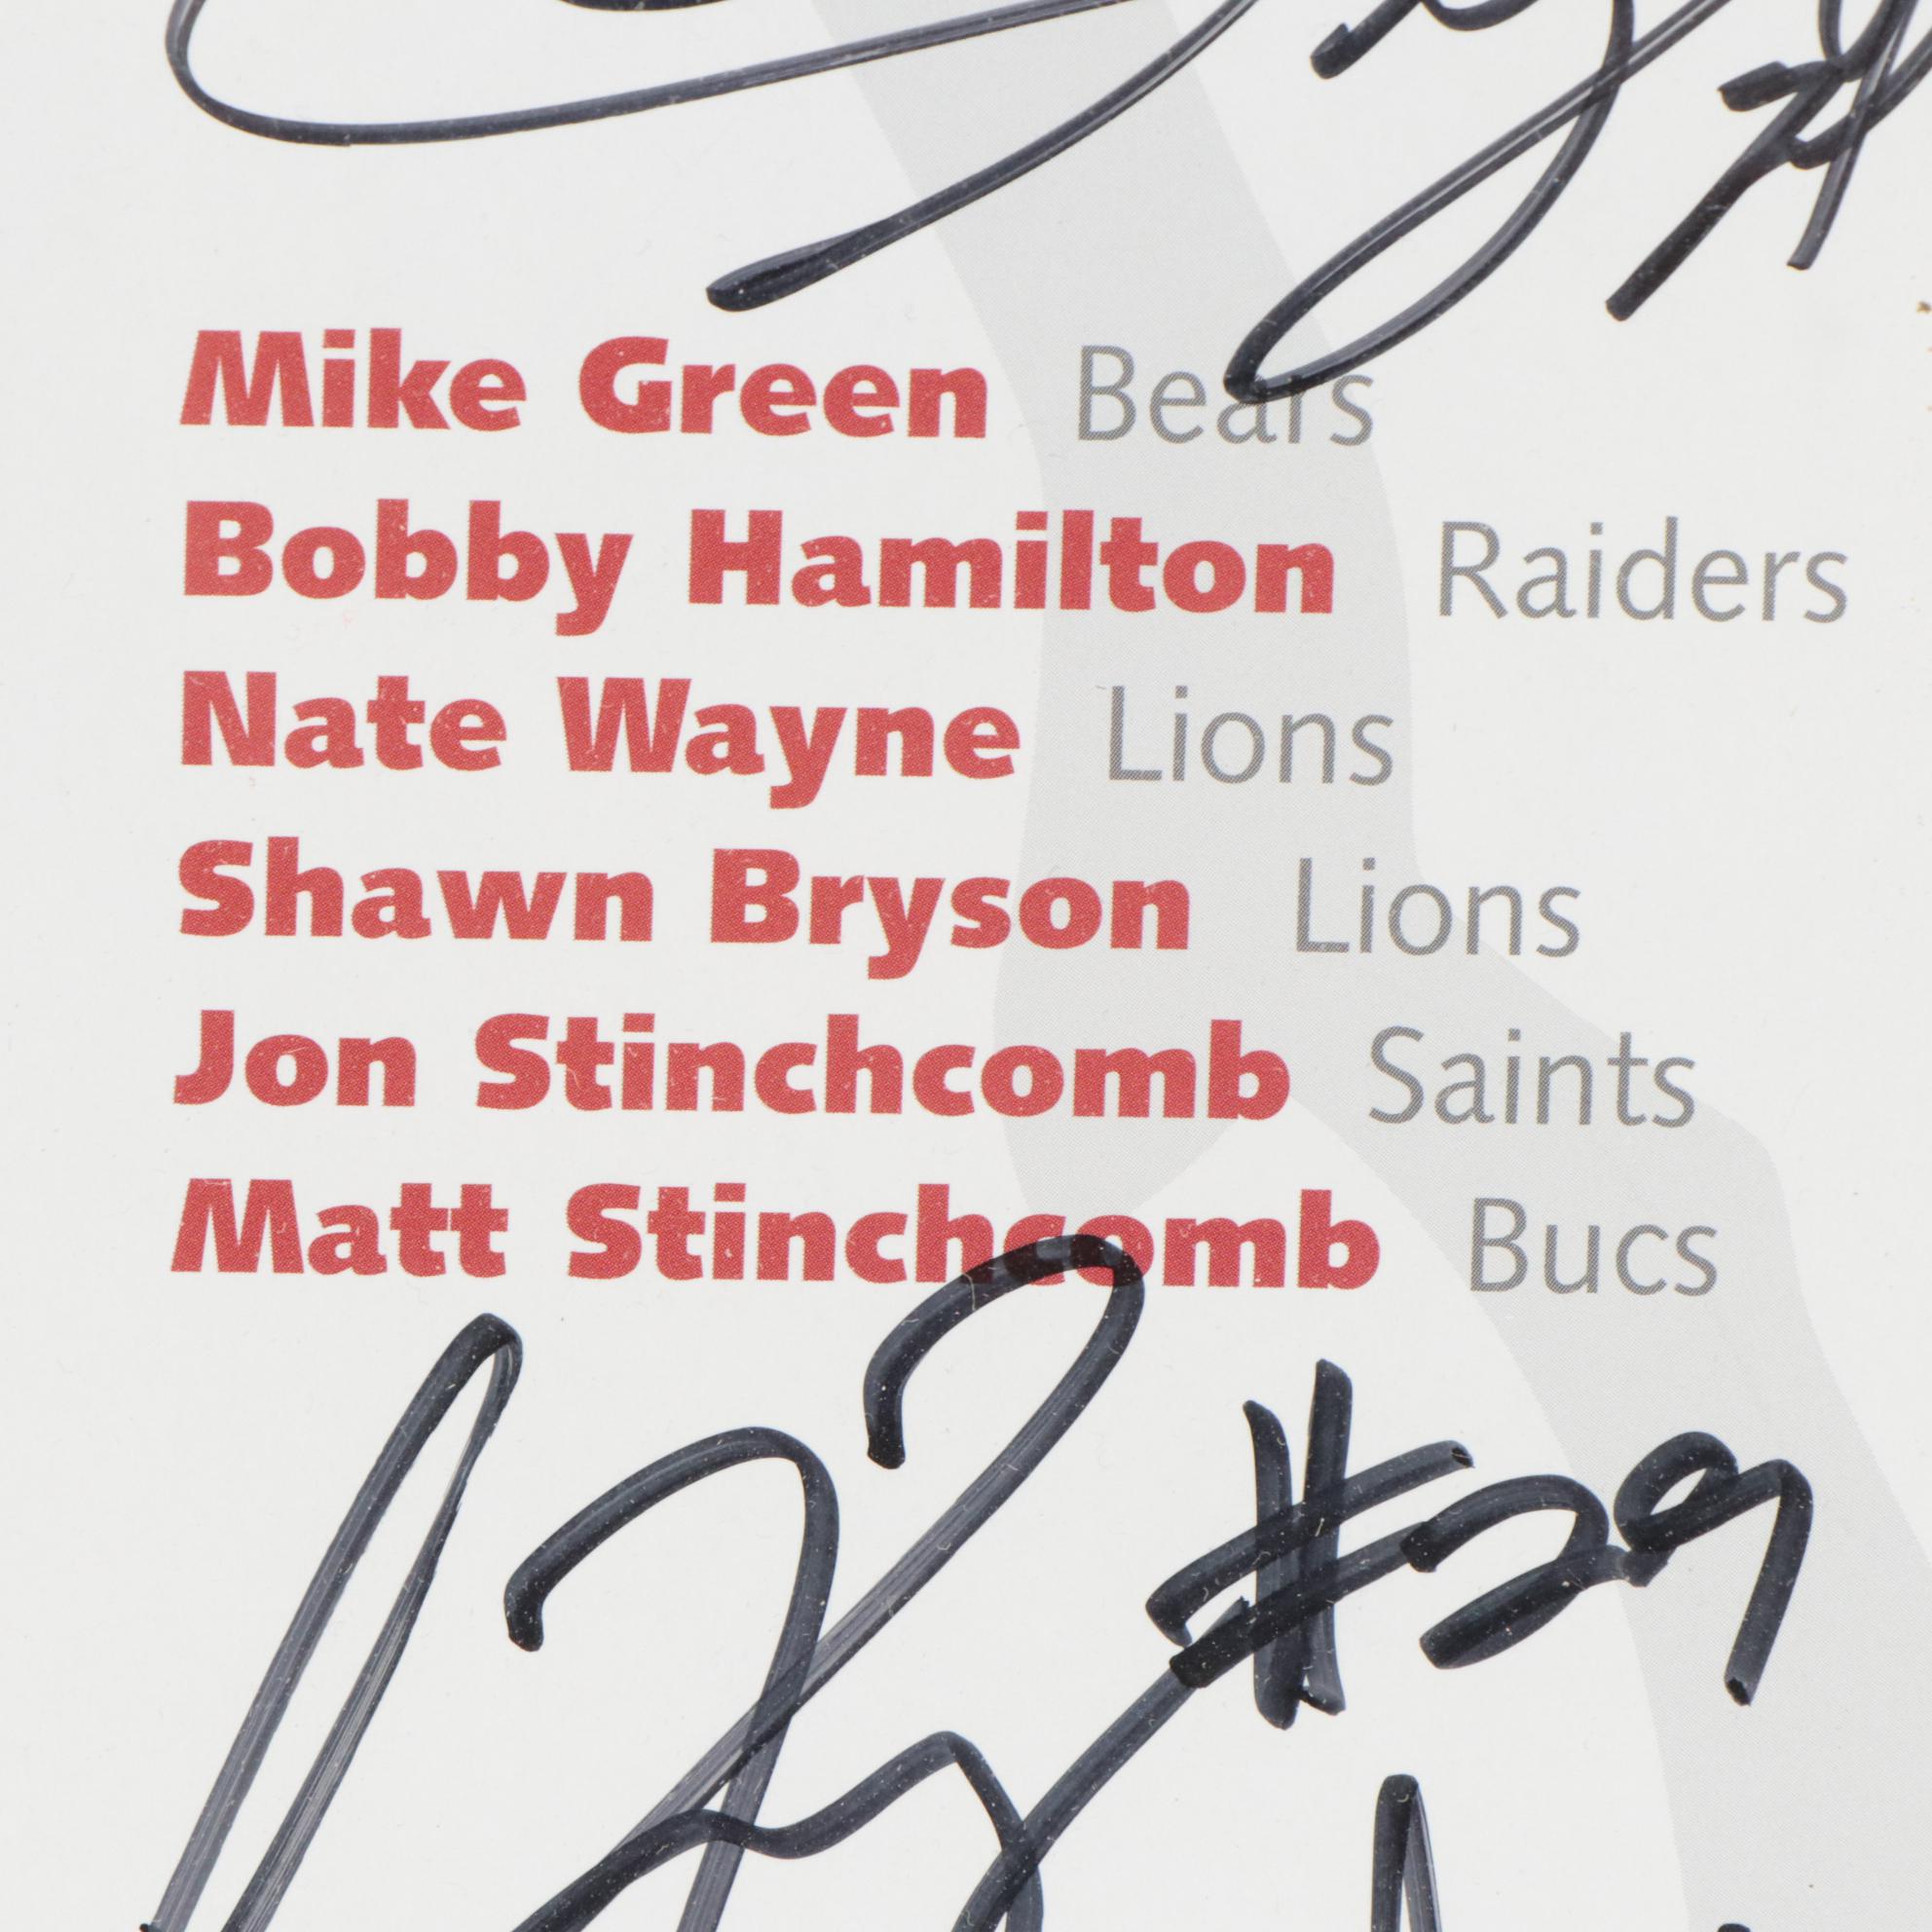 Mike Green Bears
Bobby Hamilton Raiders
Nate Wayne Lions
Shawn Bryson Lions
Jon Stinchcomb Saints
Matt Stinchcomb Bucs
#29